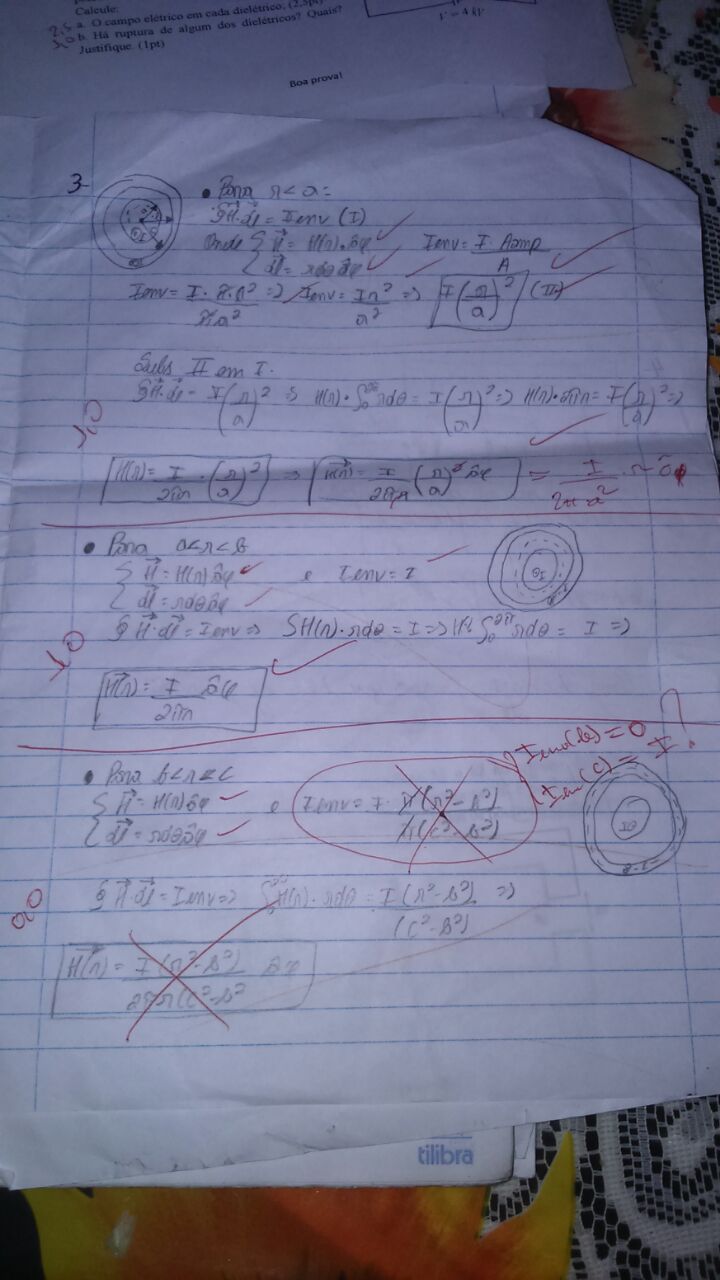 Calcule:
2,5 a. O campo elétrico em cada dielétrico; (2,5pt)
b. Há ruptura de algum dos dielétricos? Quais?
Justifique. (1pt)
V = 4 kV
Boa prova!
3-
• Para r < a:
∮H⃗·dl⃗ = Ienv (I)
Onde { H⃗ = H(r)·âφ Ienv = I · Aamp / A
{ dl⃗ = rdθ âφ
Ienv = I · π·r² / πa² => Ienv = Ir² / a² => I(r/a)² (II)
Subs II em I.
∮H⃗·dl⃗ = I(r/a)² => H(r)·∫₀²π rdθ = I(r/a)² => H(r)·2πr = I(r/a)² =>
1,0
H(r) = I/2πr · (r/a)² => H⃗(r) = I/2πr (r/a)² âφ = I/2πa² · r âφ
• Para a<r<b
{ H⃗ = H(r)âφ e Ienv = I
{ dl⃗ = rdθâφ
∮H⃗·dl⃗ = Ienv => ∫H(r)·rdθ = I => H· ∫₀²π rdθ = I =>
1,0
H⃗(r) = I/2πr âφ
• Para b<r<c
Ienv(b) = 0
Ienv(c) = I ?
{ H⃗ = H(r)âφ e Ienv = I · π(r²-b²) / π(c²-b²)
{ dl⃗ = rdθâφ
∮H⃗·dl⃗ = Ienv => ∫₀²π H(r)·rdθ = I(r²-b²) / (c²-b²) =>
0,0
H⃗(r) = I(r²-b²) / 2πr(c²-b² âφ
tilibra